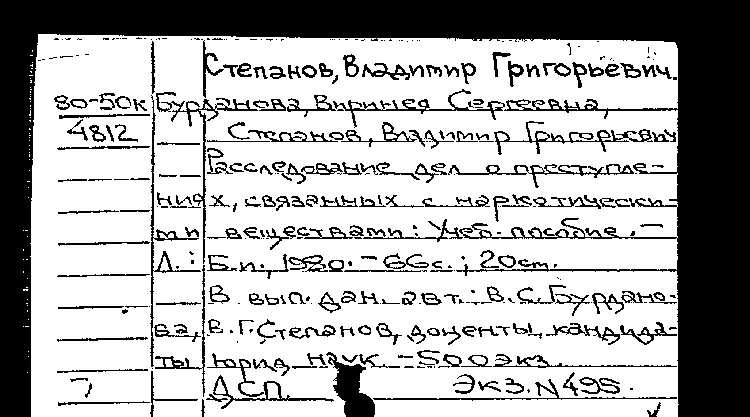 Степанов, Владимир Григорьевич.
80-50к Бурданова, Виринея Сергеевна,
4812 Степанов, Владимир Григорьевич
Расследование дел о преступле-
ниях, связанных с наркотически-
ми веществами: Учеб. пособие. —
Л.: Б.и., 1980. - 66с.; 20см.
В вып. дан. авт.: В.С. Бурдано-
ва, В.Г. Степанов, доценты, кандида-
ты юрид. наук. - 500 экз.
ДСП. Экз. N495.